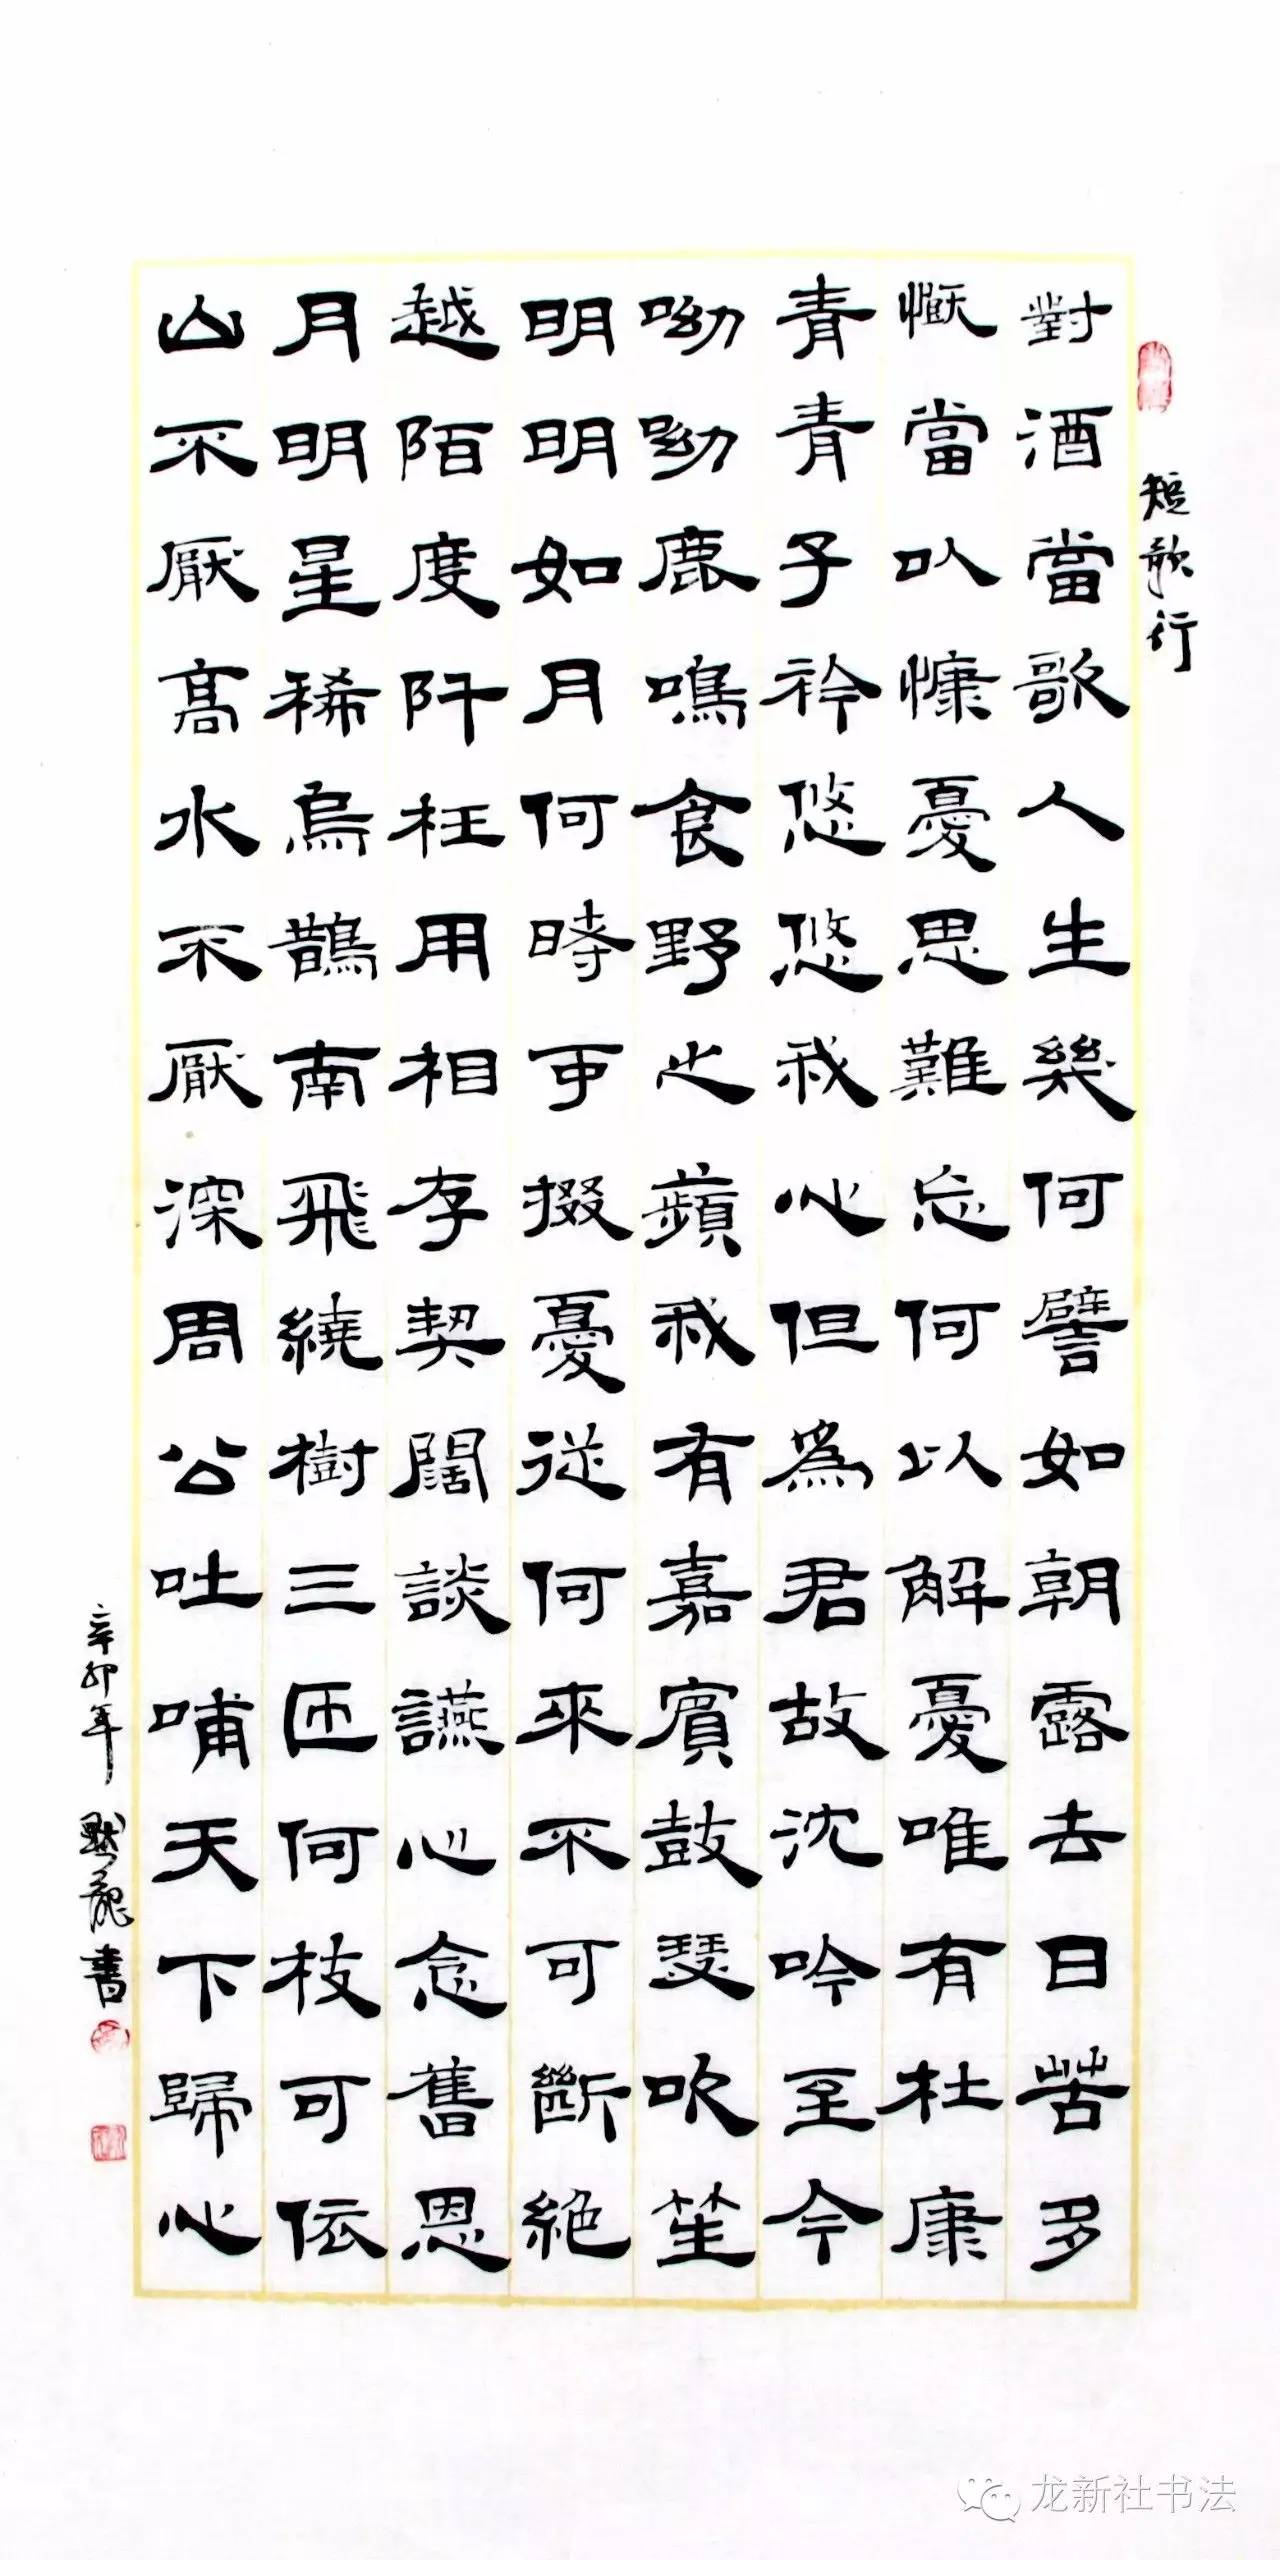 短歌行
對酒當歌人生幾何譬如朝露去日苦多
慨當以慷憂思難忘何以解憂唯有杜康
青青子衿悠悠我心但為君故沈吟至今
呦呦鹿鳴食野之蘋我有嘉賓鼓瑟吹笙
明明如月何時可掇憂從何來不可斷絕
越陌度阡枉用相存契闊談讌心念舊恩
月明星稀烏鵲南飛繞樹三匝何枝可依
山不厭高水不厭深周公吐哺天下歸心
辛卯年 默龍書
龙新社书法